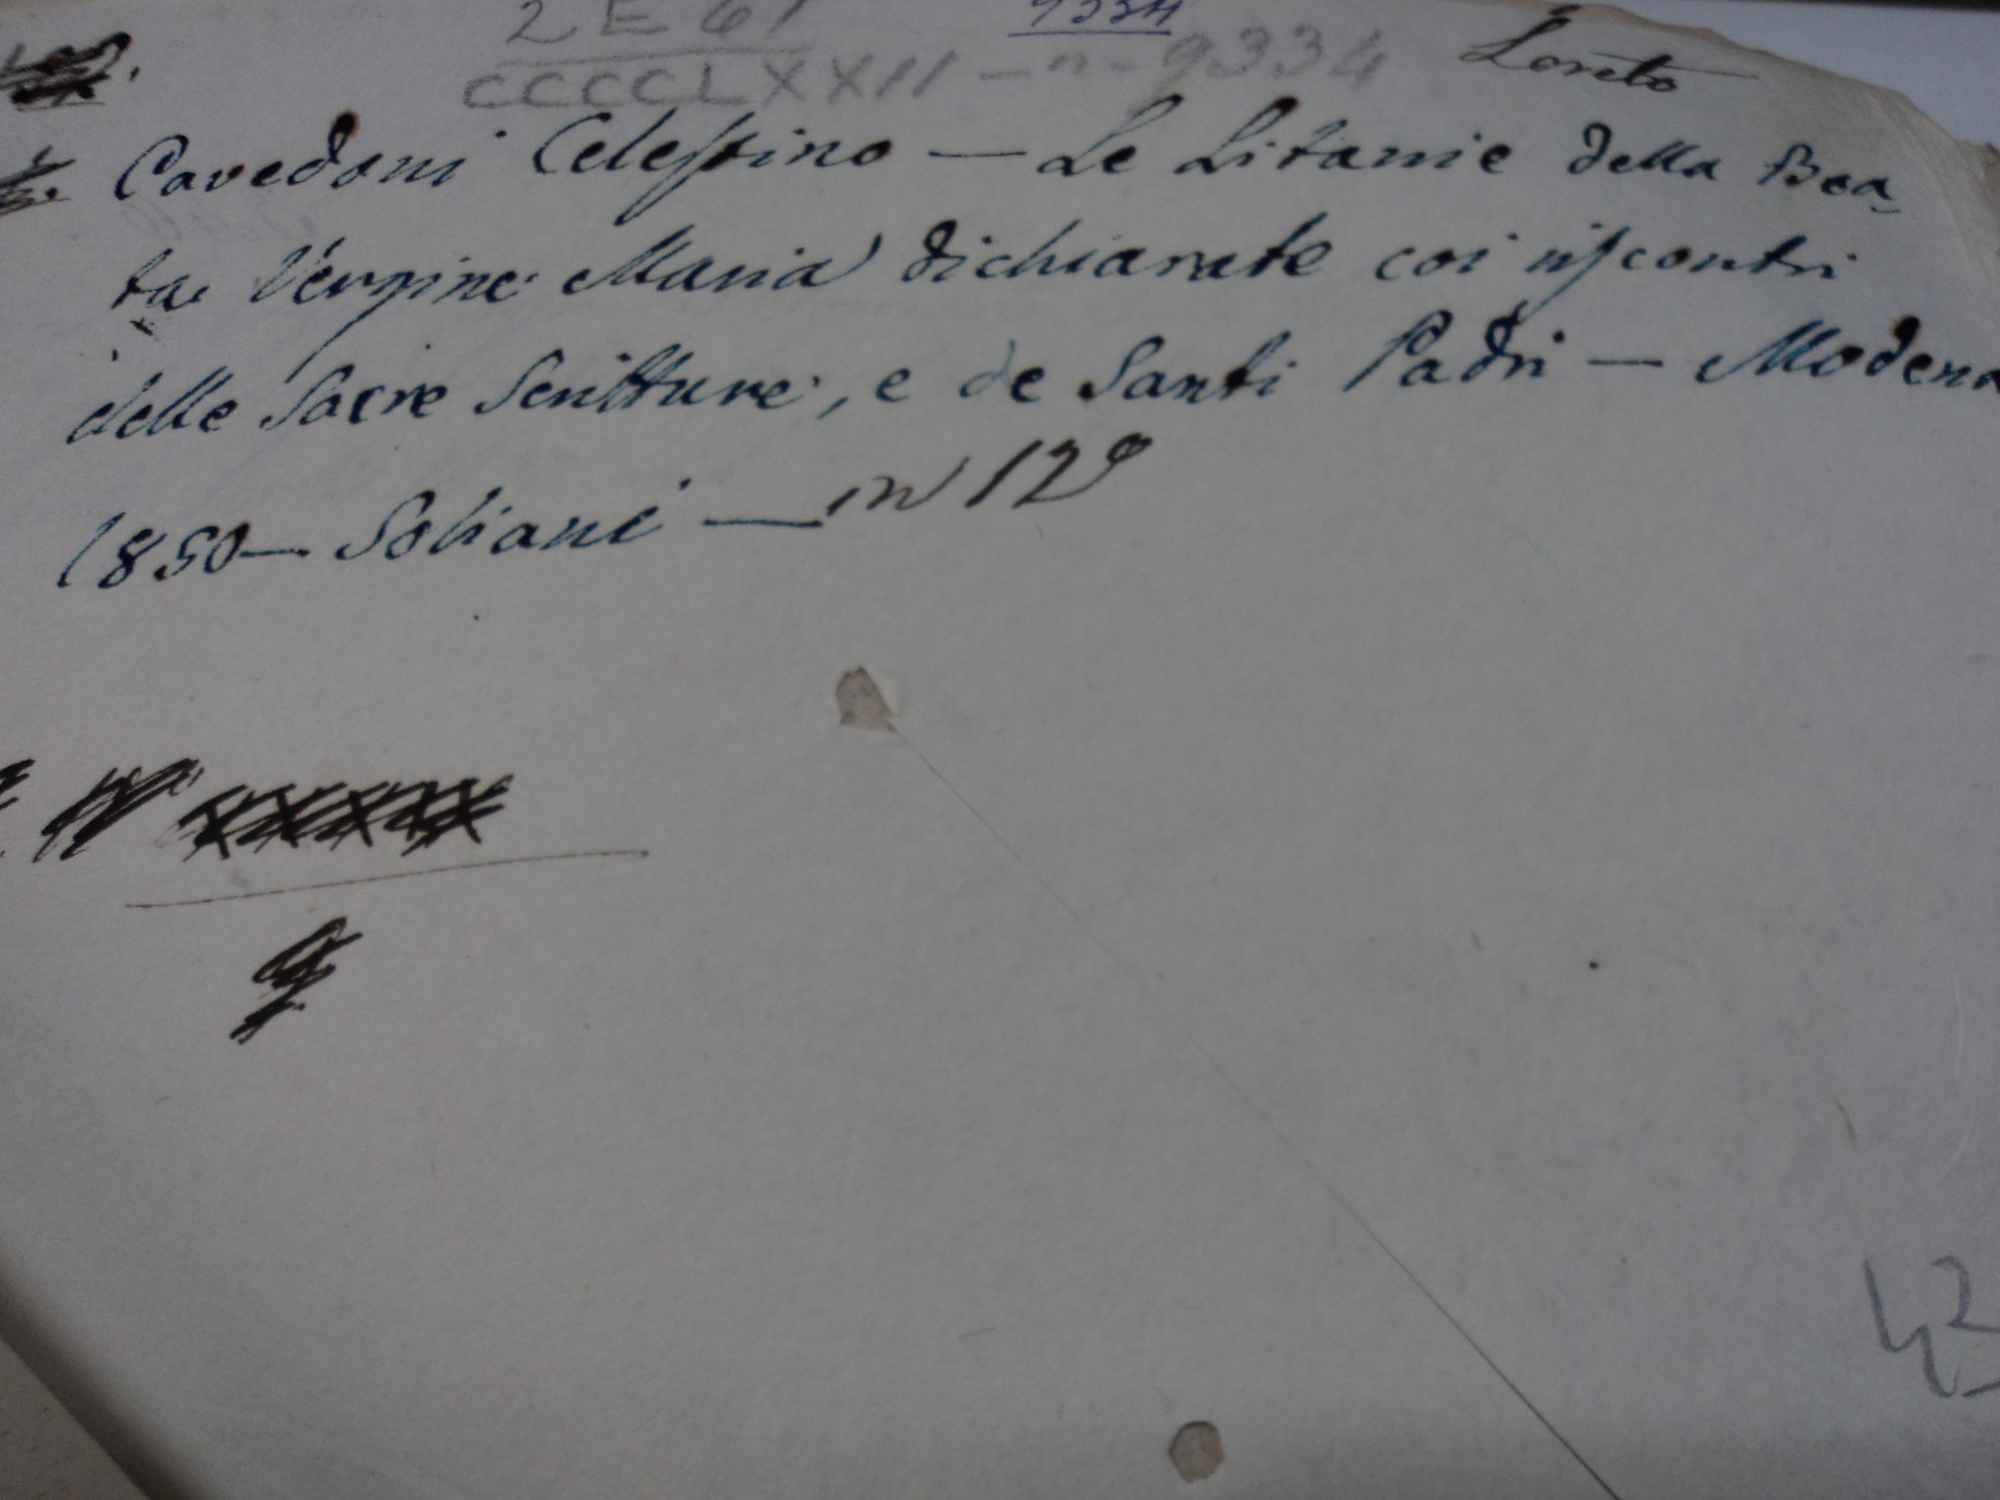 2 E 61 9334
CCCCCLXXII - n. 9334 Loreto
Cavedoni Celestino — Le Litanie della Bea-
ta Vergine Maria dichiarate coi riscontri
delle Sacre Scritture, e de Santi Padri — Modena
1850 — Soliani — in 12°
43